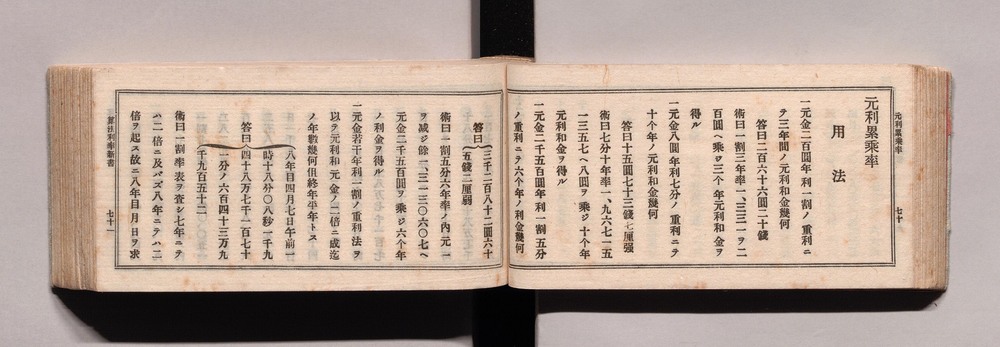 元利累乘率
七十
元利累乘率
用法
一元金二百圓年利一割ノ重利ニ
テ三年間ノ元利和金幾何
答曰二百六十六圓二十錢
術曰一割三年率一、三三一ヲ二
百圓ヘ乘ジ三個年元利和金ヲ
得ル
一元金八圓年利七分ノ重利ニテ
十个年ノ元利和金幾何
答曰十五圓七十三錢七厘强
術曰七分十年率一、九六七一五
一三五七ヘ八圓ヲ乘ジ十个年
元利和金ヲ得ル
一元金二千五百圓年利一割五分
ノ重利ニテ六个年ノ利金幾何
答曰
三千二百八十二圓六十
五錢二厘弱
術曰一割五分六年率ノ內元一
ヲ減ジ餘一、三一三〇六〇七ヘ
元金二千五百圓ヲ乘ジ六个年
ノ利金ヲ得ル
一元金若干年利一割ノ重利法ヲ
以テ元利和元金ノ二倍ニ成迄
ノ年數幾何但終年半年トス
答曰
八年目四月七日午前一
時十八分〇八秒一千九
四十八万七千一百七十
一分ノ六百四十三万九
千九百五十二
術曰一割率表ヲ査シ七年ニテ
ハ二倍ニ及バズ八年ニテハ二
倍ヲ起ス故ニ八年目月日ヲ求
算法利率新書
七十一